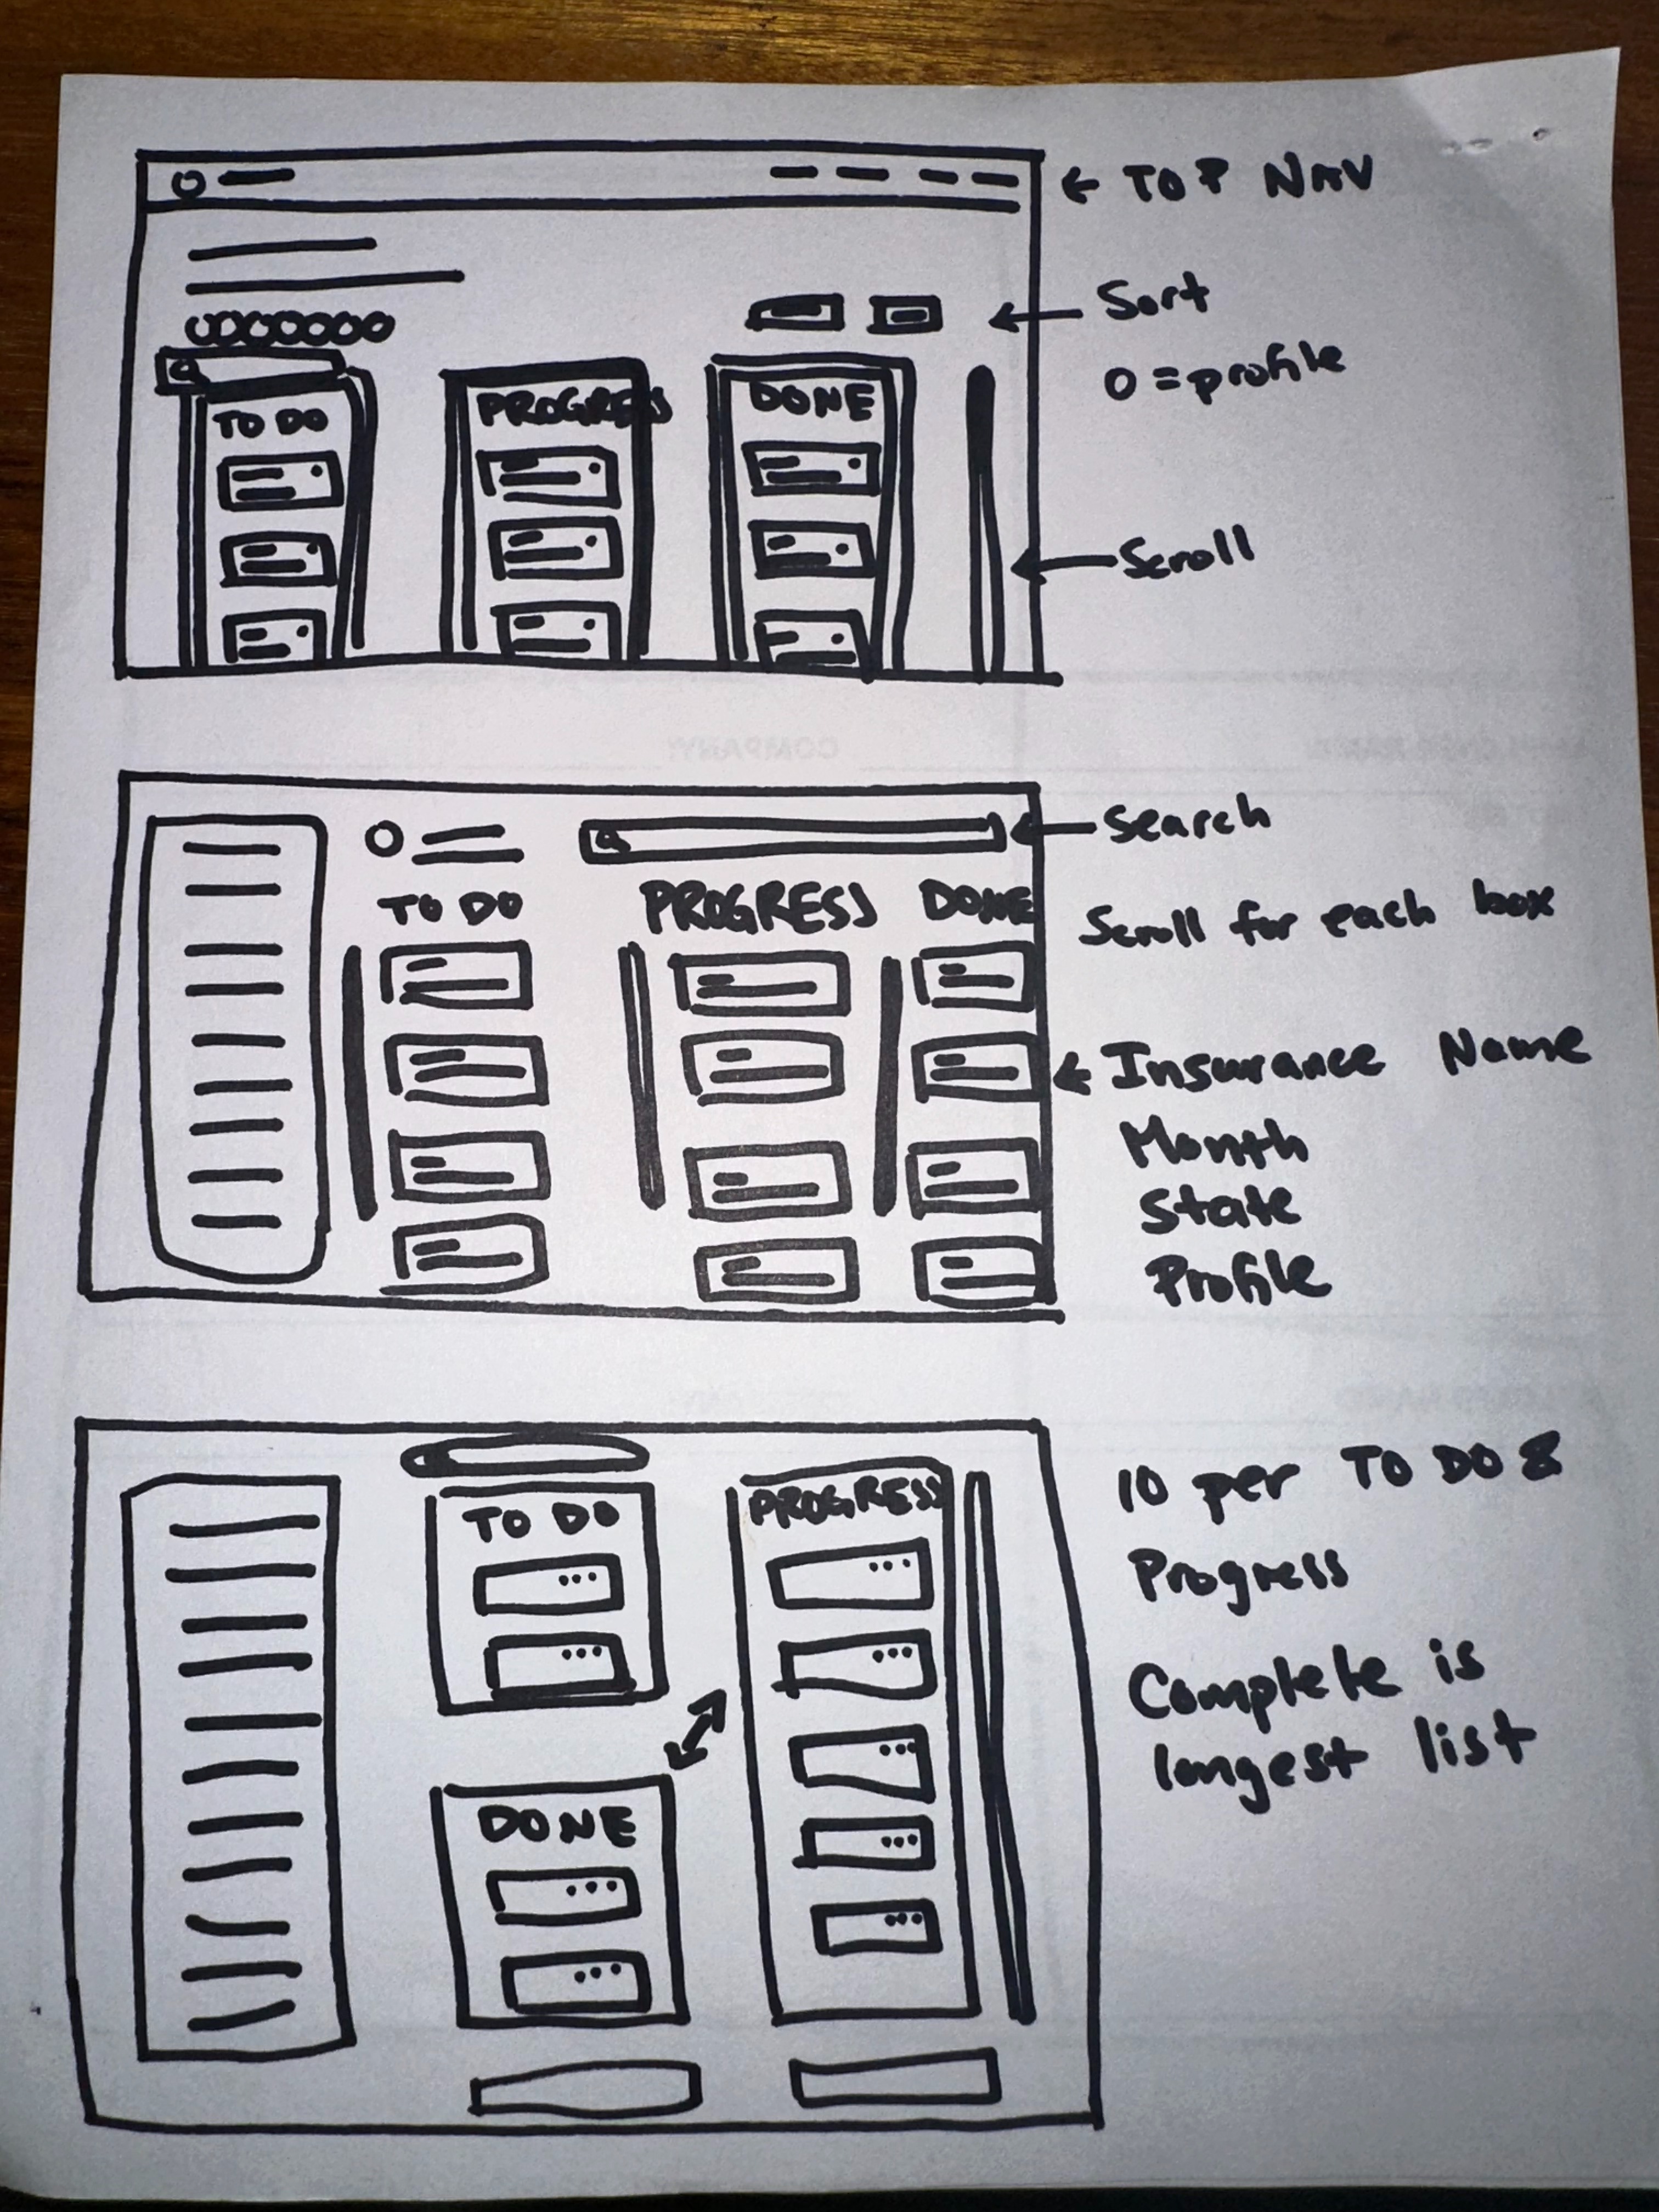 ← TOP NAV
← Sort
O = profile
TO DO
PROGRESS
DONE
← Scroll
← Search
TO DO
PROGRESS
DONE
Scroll for each box
← Insurance Name
Month
State
Profile
TO DO
PROGRESS
DONE
10 per TO DO &
Progress
Complete is
longest list
COMPANY: